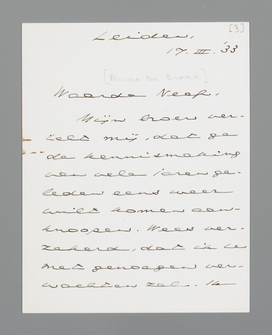 [3]
Leiden,
17. III. '33
Waarde Neef,
Mijn broer ver-
telt mij, dat ge
de kennismaking
van vele jaren ge-
leden eens weer
wilt komen aan-
knoopen. Wees ver-
zekerd, dat ik je
met genoegen ver-
wachten zal. Ik